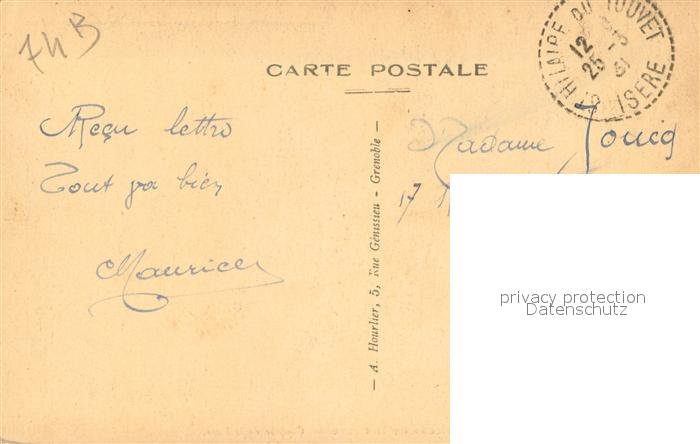 74B
CARTE POSTALE
ST HILAIRE DU TOUVET
12
25 - 5
31
ISERE
Reçu lettre
Tout va bien
Maurice
Madame
17
— A. Hourlier, 5, Rue Génissieu - Grenoble —
privacy protection
Datenschutz